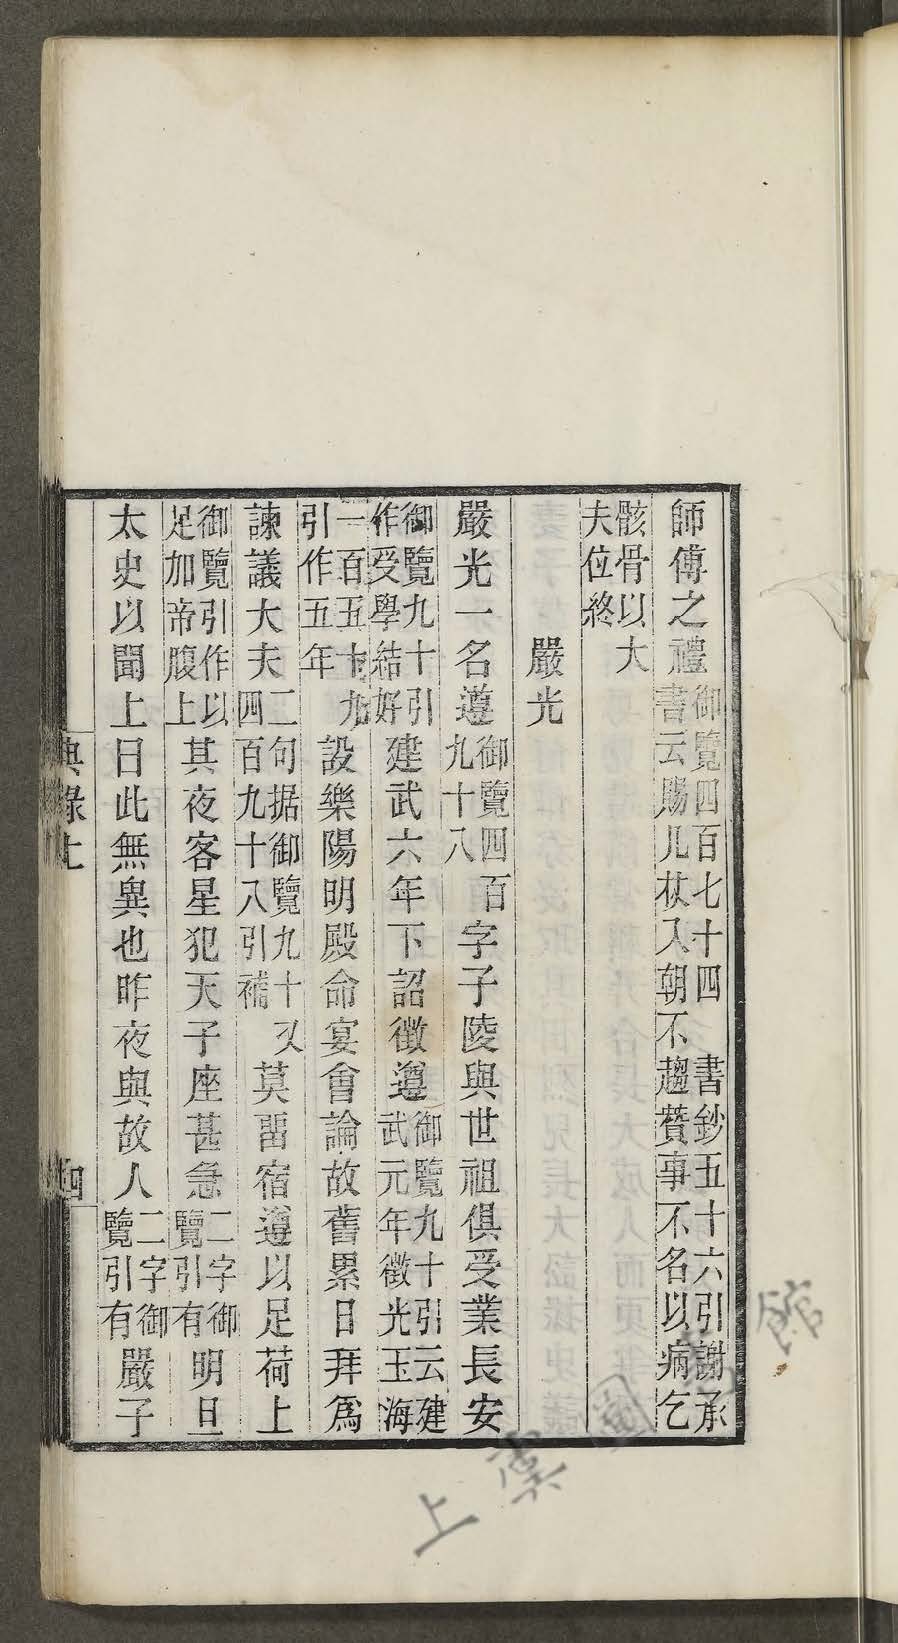 師傅之禮御覽四百七十四 書鈔五十六引謝承書云賜几杖入朝不趨贊事不名以病乞
骸骨以大夫位終
嚴光
嚴光一名遵御覽四百九十八字子陵與世祖俱受業長安
御覽九十引作受學結好建武六年下詔徵遵御覽九十引云建武元年徵光玉海
一百五十九引作五年設樂陽明殿命宴會論故舊累日拜爲
諫議大夫二句据御覽九十 又四百九十八引補莫畱宿遵以足荷上
御覽引作以足加帝腹上其夜客星犯天子座甚急二字御覽引有明旦
太史以聞上曰此無異也昨夜與故人二字御覽引有嚴子
典錄上
四
上虞圖書館